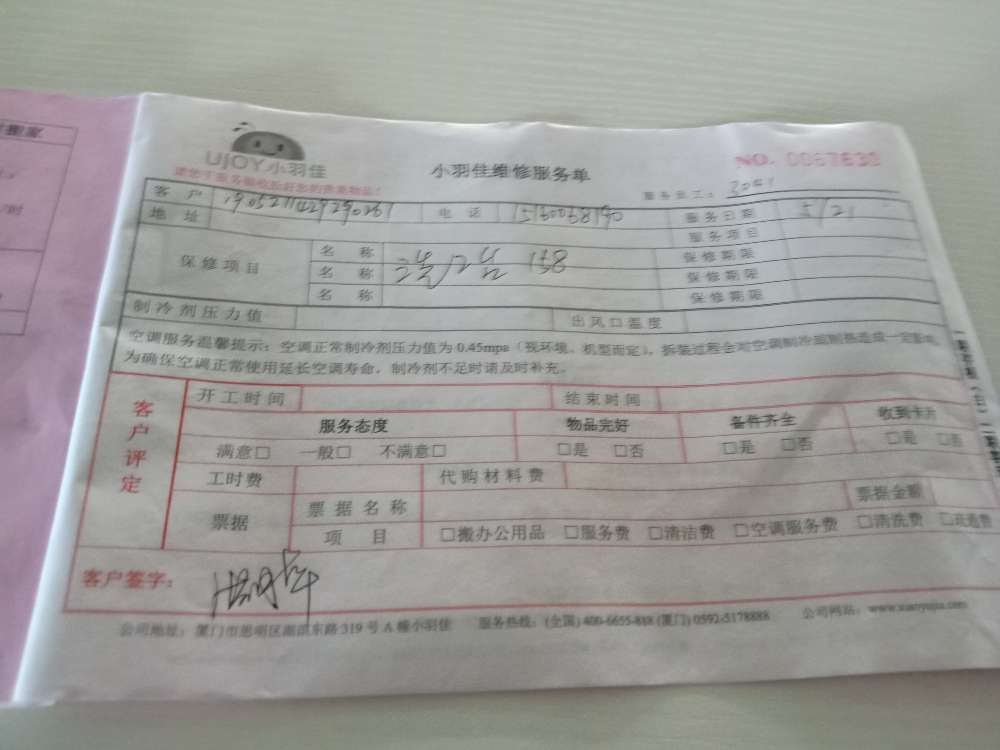 UJOY小羽佳
小羽佳维修服务单
NO. 0067630
服务员工:
客户 电话 15160068190 服务日期 5/21
地址 服务项目
保修项目 名称 保修期限
名称 洗1台 158 保修期限
名称 保修期限
制冷剂压力值 出风口温度
空调服务温馨提示:空调正常制冷剂压力值为0.45mpa(视环境、机型而定),拆装过程会对空调制冷或制热造成一定影响,
为确保空调正常使用延长空调寿命,制冷剂不足时请及时补充。
客户评定
开工时间 结束时间
服务态度 物品完好 备件齐全 收到卡片
满意□ 一般□ 不满意□ □是 □否 □是 □否 □是 □否
工时费 代购材料费
票据 票据名称 票据金额
项目 □搬办公用品 □服务费 □清洁费 □空调服务费 □清洗费
客户签字:
公司地址:厦门市思明区湖滨东路319号A幢小羽佳 服务热线:(全国) 400-6655-818 (厦门) 0592-5178888 公司网站:www.xiaoyujia.com